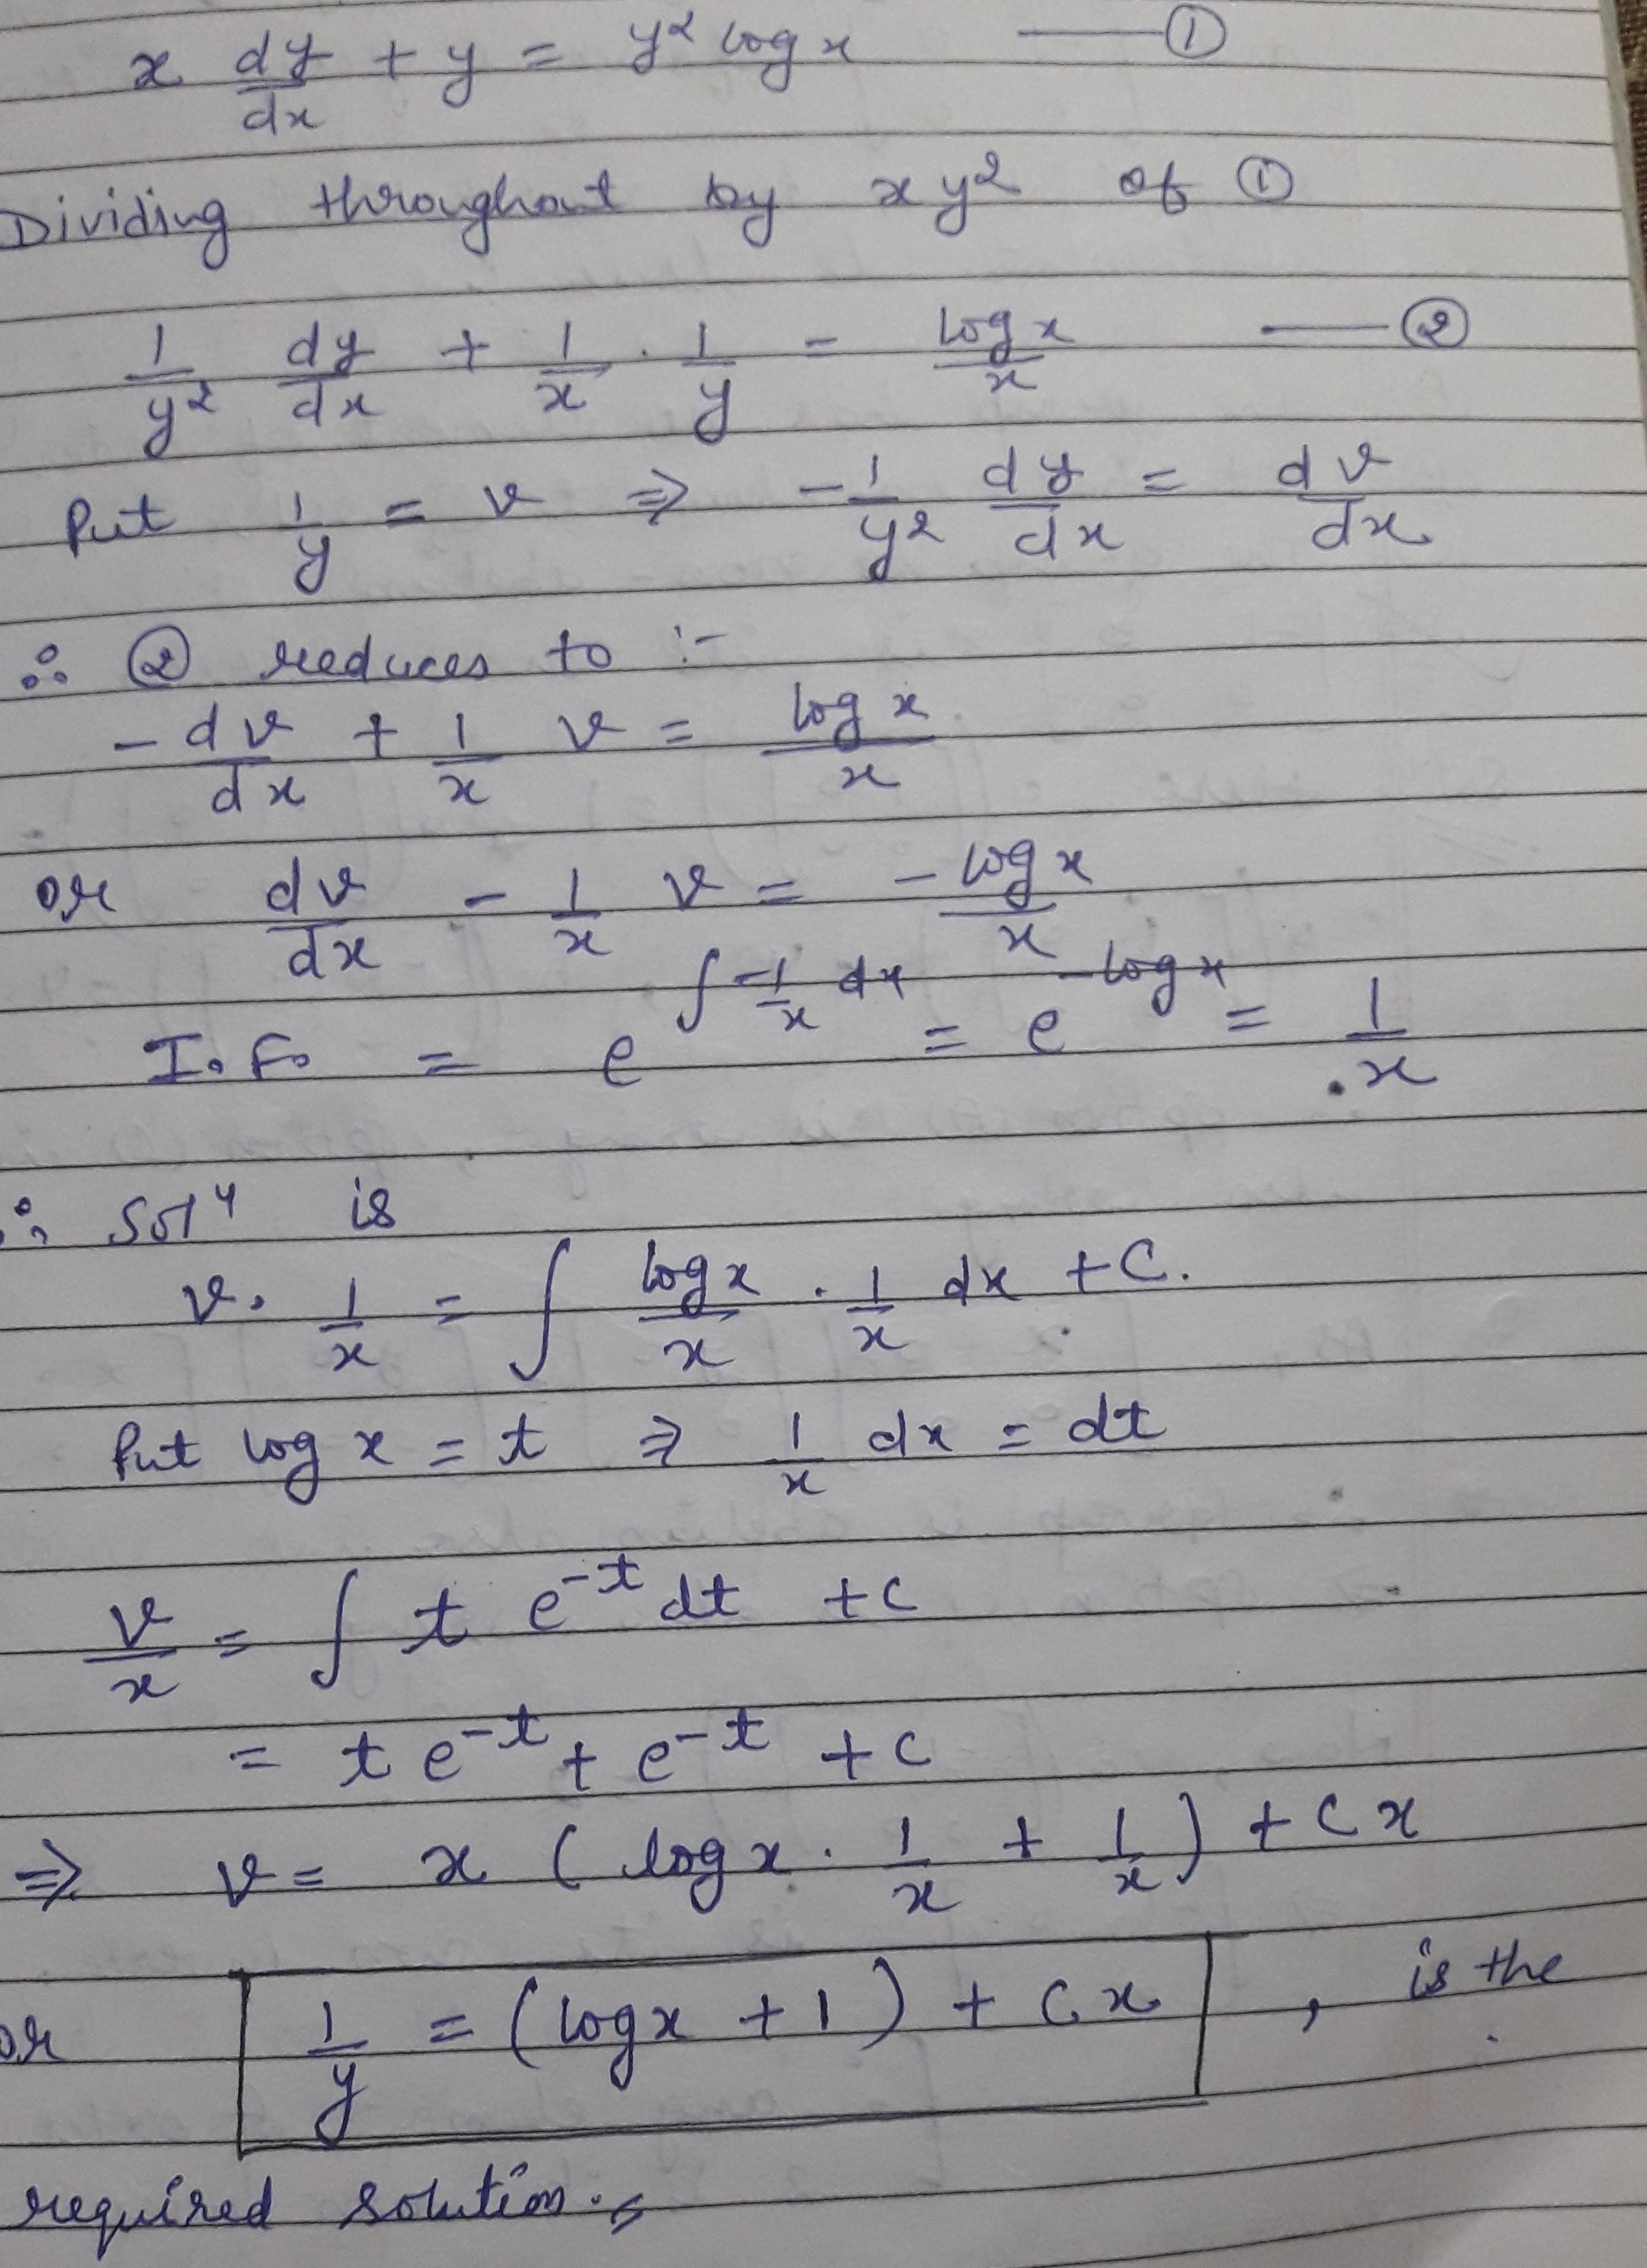 x dy/dx + y = y² log x —— ①
Dividing throughout by xy² of ①
1/y² dy/dx + 1/x · 1/y = log x/x —— ②
Put 1/y = v ⇒ -1/y² dy/dx = dv/dx
∴ ② reduces to :-
- dv/dx + 1/x v = log x/x
or dv/dx - 1/x v = - log x/x
I.F. = e^{∫ -1/x dx} = e^{-log x} = 1/x
∴ Solⁿ is
v. 1/x = ∫ log x/x · 1/x dx + C.
Put log x = t ⇒ 1/x dx = dt
v/x = ∫ t e^{-t} dt + c
= t e^{-t} + e^{-t} + c
⇒ v = x (log x · 1/x + 1/x) + Cx
or 1/y = (log x + 1) + Cx , is the
required solution.